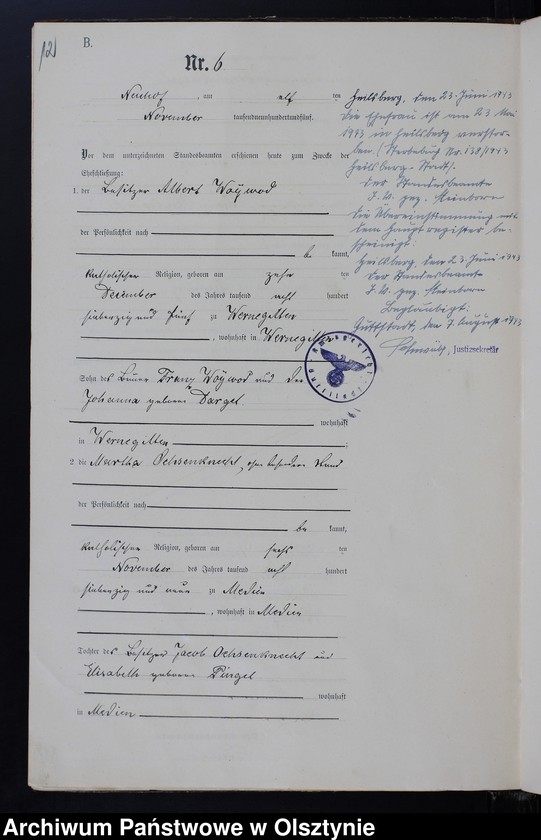 12
B.
Nr. 6
Neuhof, am elf ten
November tausendneunhundertundfünf.
Vor dem unterzeichneten Standesbeamten erschienen heute zum Zwecke der
Eheschließung:
1. der Besitzer Albert Woÿwod
der Persönlichkeit nach
be kannt,
katholischer Religion, geboren am zehn ten
Dezember des Jahres tausend acht hundert
siebenzig und fünf zu Wernegitten
, wohnhaft in Wernegitten
Sohn des Franz Woÿwod und der
Johanna geborene Dargel
wohnhaft
in Wernegitten ;
2. die Martha Ochsenknecht, ohne besonderen Stand
der Persönlichkeit nach
be kannt,
katholischer Religion, geboren am sechs ten
November des Jahres tausend acht hundert
siebenzig und neun zu Medien
, wohnhaft in Medien
Tochter des Besitzer Jacob Ochsenknecht und
Elisabeth geborene
wohnhaft
in Medien
Heilsberg, den 23. Juni 1943
Die Ehefrau ist am 23. Mai
1943 in Heilsberg verstor-
ben (Sterbebuch Nr. 138/1943
Heilsberg-Stadt).
Der Standesbeamte
I. V. gez. Steinborn
Die Übereinstimmung mit
dem Hauptregister be-
scheinigt.
Heilsberg, den 23. Juni 1943
Der Standesbeamte
I. V. gez. Steinborn
Beglaubigt:
Guttstadt, den 7. August 1943
Justizsekretär
Archiwum Państwowe w Olsztynie